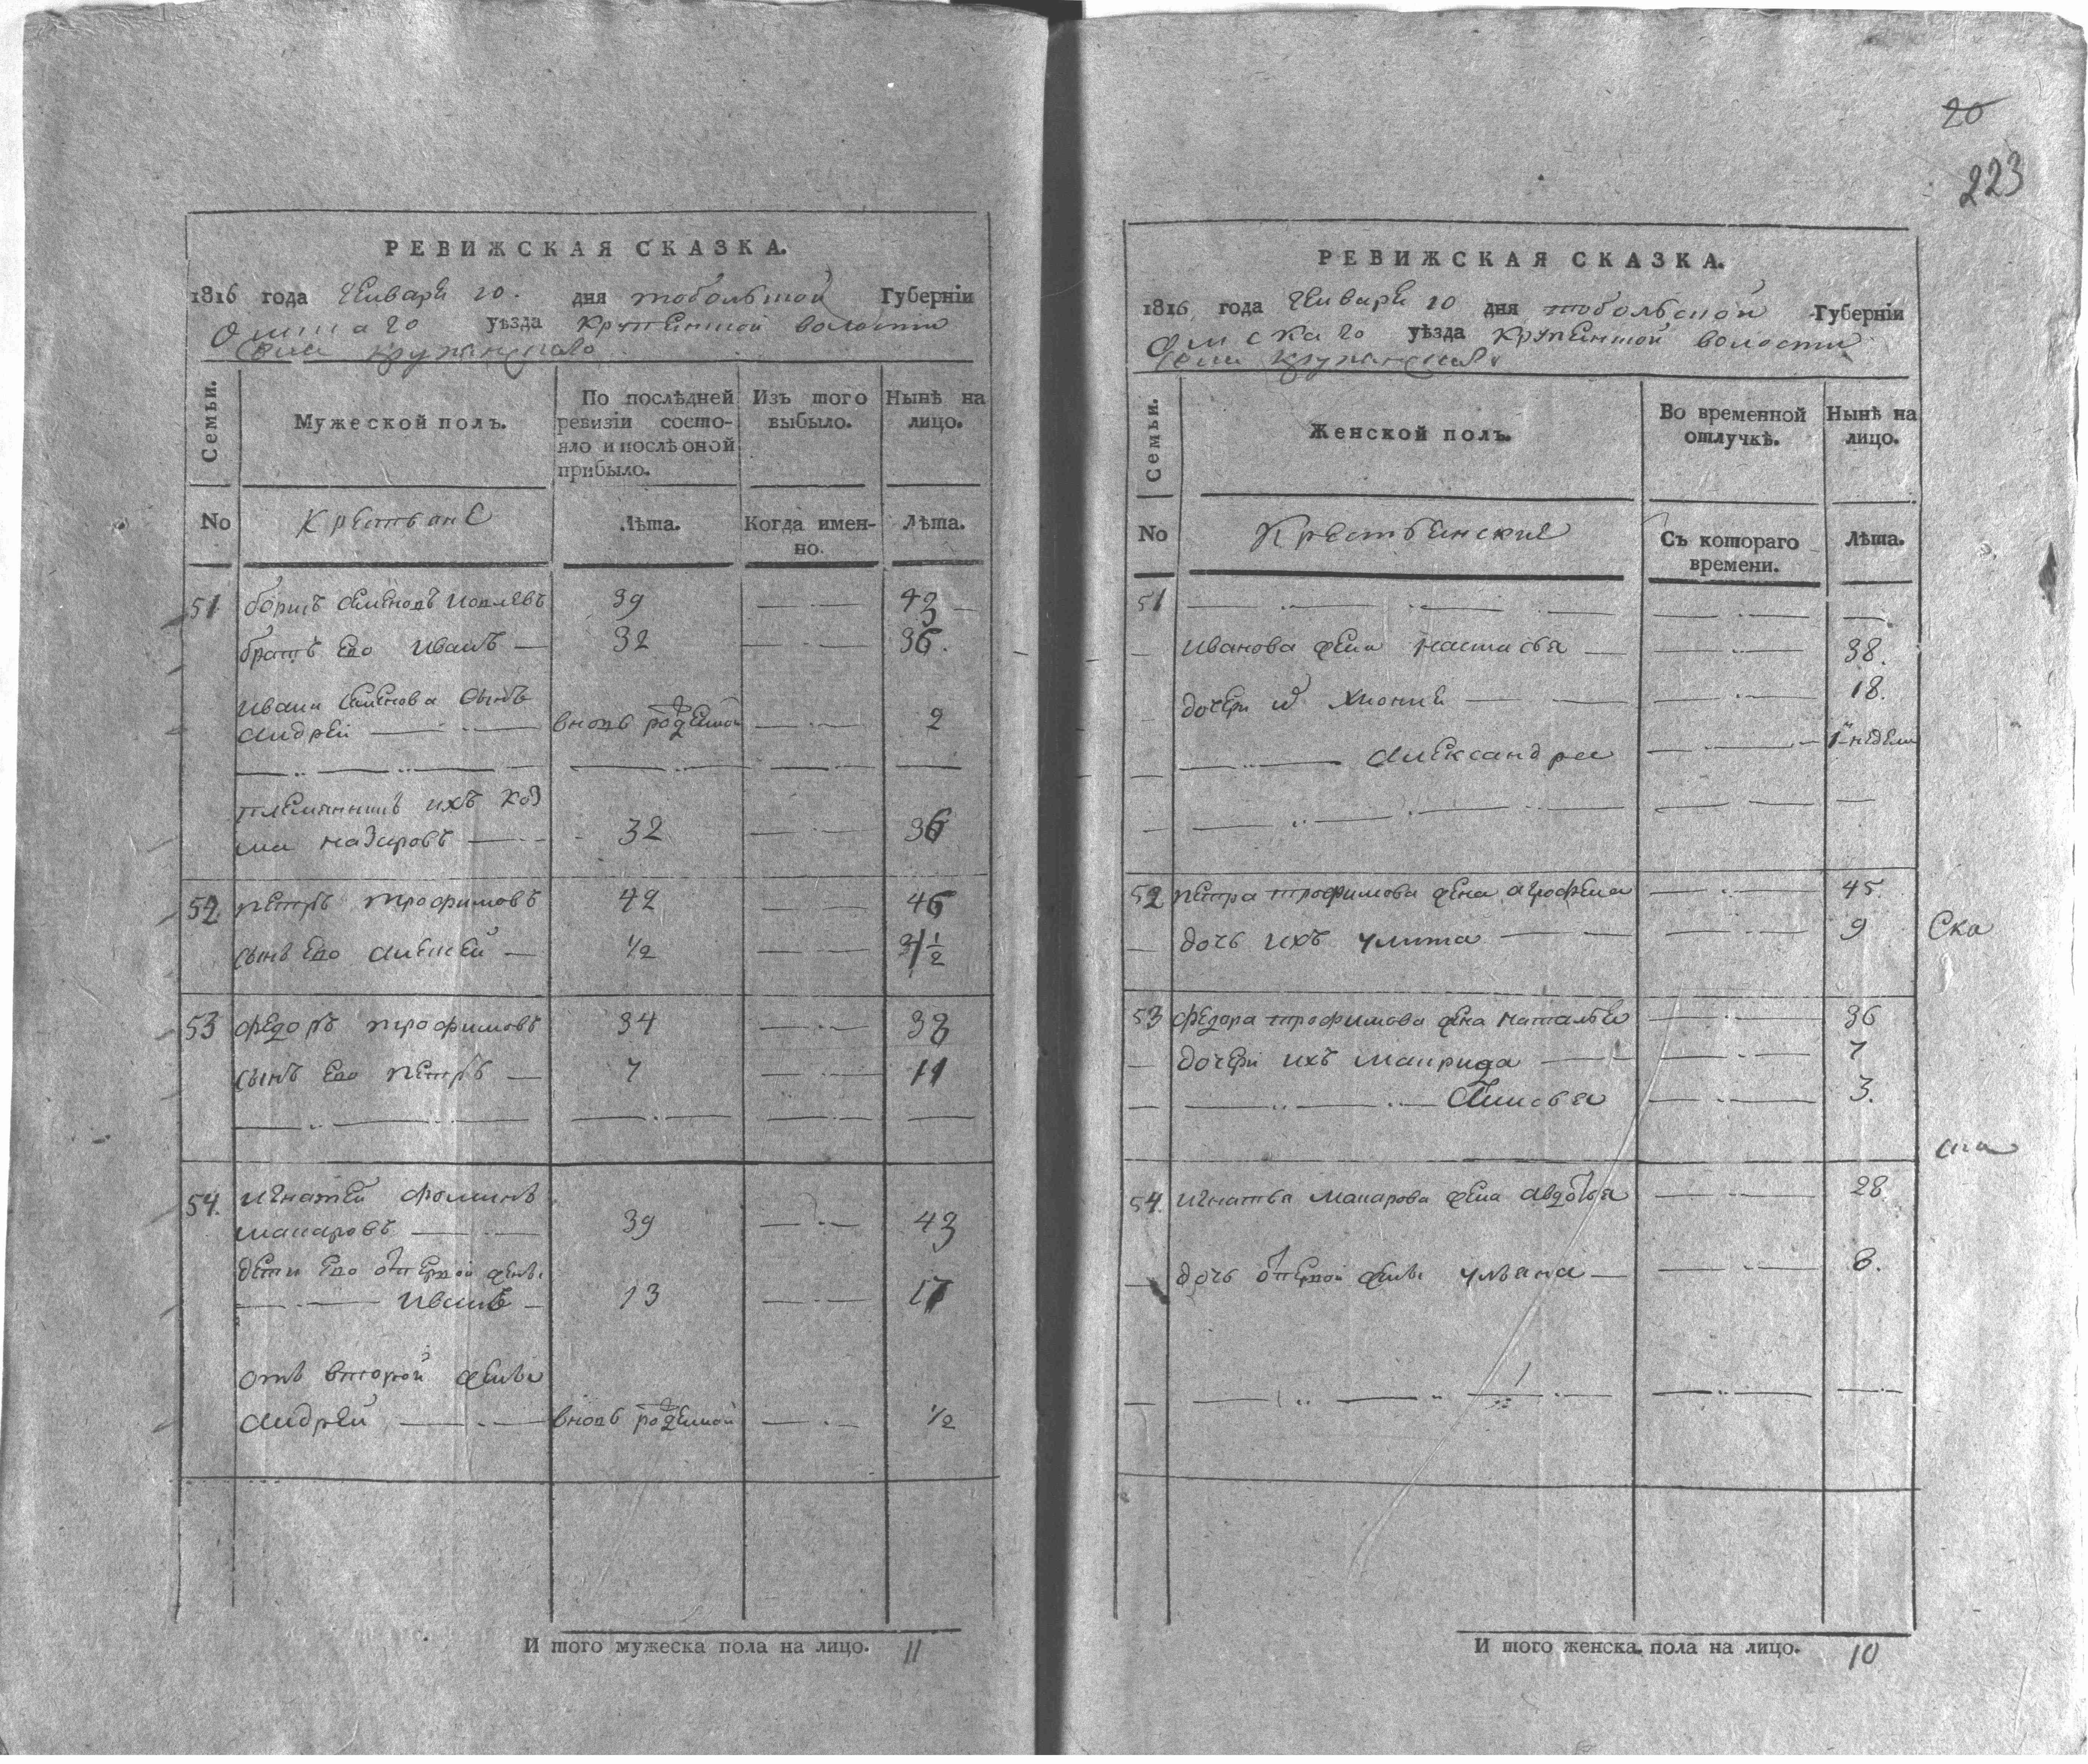 20
223
РЕВИЖСКАЯ СКАЗКА.
1816 года Генваря 20. дня тобольской Губерніи
Омскаго уѣзда крутинской волости
Семьи.
Мужеской полъ.
По послѣдней ревизіи состо-
яло и послѣ оной прибыло.
Изъ того выбыло.
Нынѣ на лицо.
No
Крестьяне
Лѣта.
Когда имен-
но.
Лѣта.
51 семеновъ 39 43
братъ его иванъ 32 36.
ивана семенова сынъ
андрей вновь рожденной 2
племянникъ ихъ коз
ма назаровъ 32 36
52 петръ трофимовъ 42 46
сынъ его алексей 1/2 4 1/2
53 федоръ трофимовъ 34 38
сынъ его петръ 7 11
54. игнатей фоминъ
макаровъ 39 43
дети его от первой жены
иванъ 13 17
отъ второй жены
андрей вновь рожденной 1/2
И того мужеска пола на лицо. 11
РЕВИЖСКАЯ СКАЗКА.
1816 года Генваря 20 дня тобольской Губерніи
Омскаго уѣзда крутинской волости
Семьи.
Женской полъ.
Во временной отлучкѣ.
Нынѣ на лицо.
No
Крестьянские
Съ котораго
времени.
Лѣта.
51
иванова жена настасья 38.
дочери хиония 18.
александра недели
52 петра трофимова жена агрофена 45.
дочь ихъ улита 9
53 федора трофимова жена наталья 36
дочери ихъ маврида 7
3.
54. игнатья макарова жена авдотья 28
дочь от первой жены ульяна 8.
И того женска пола на лицо. 10
Ска